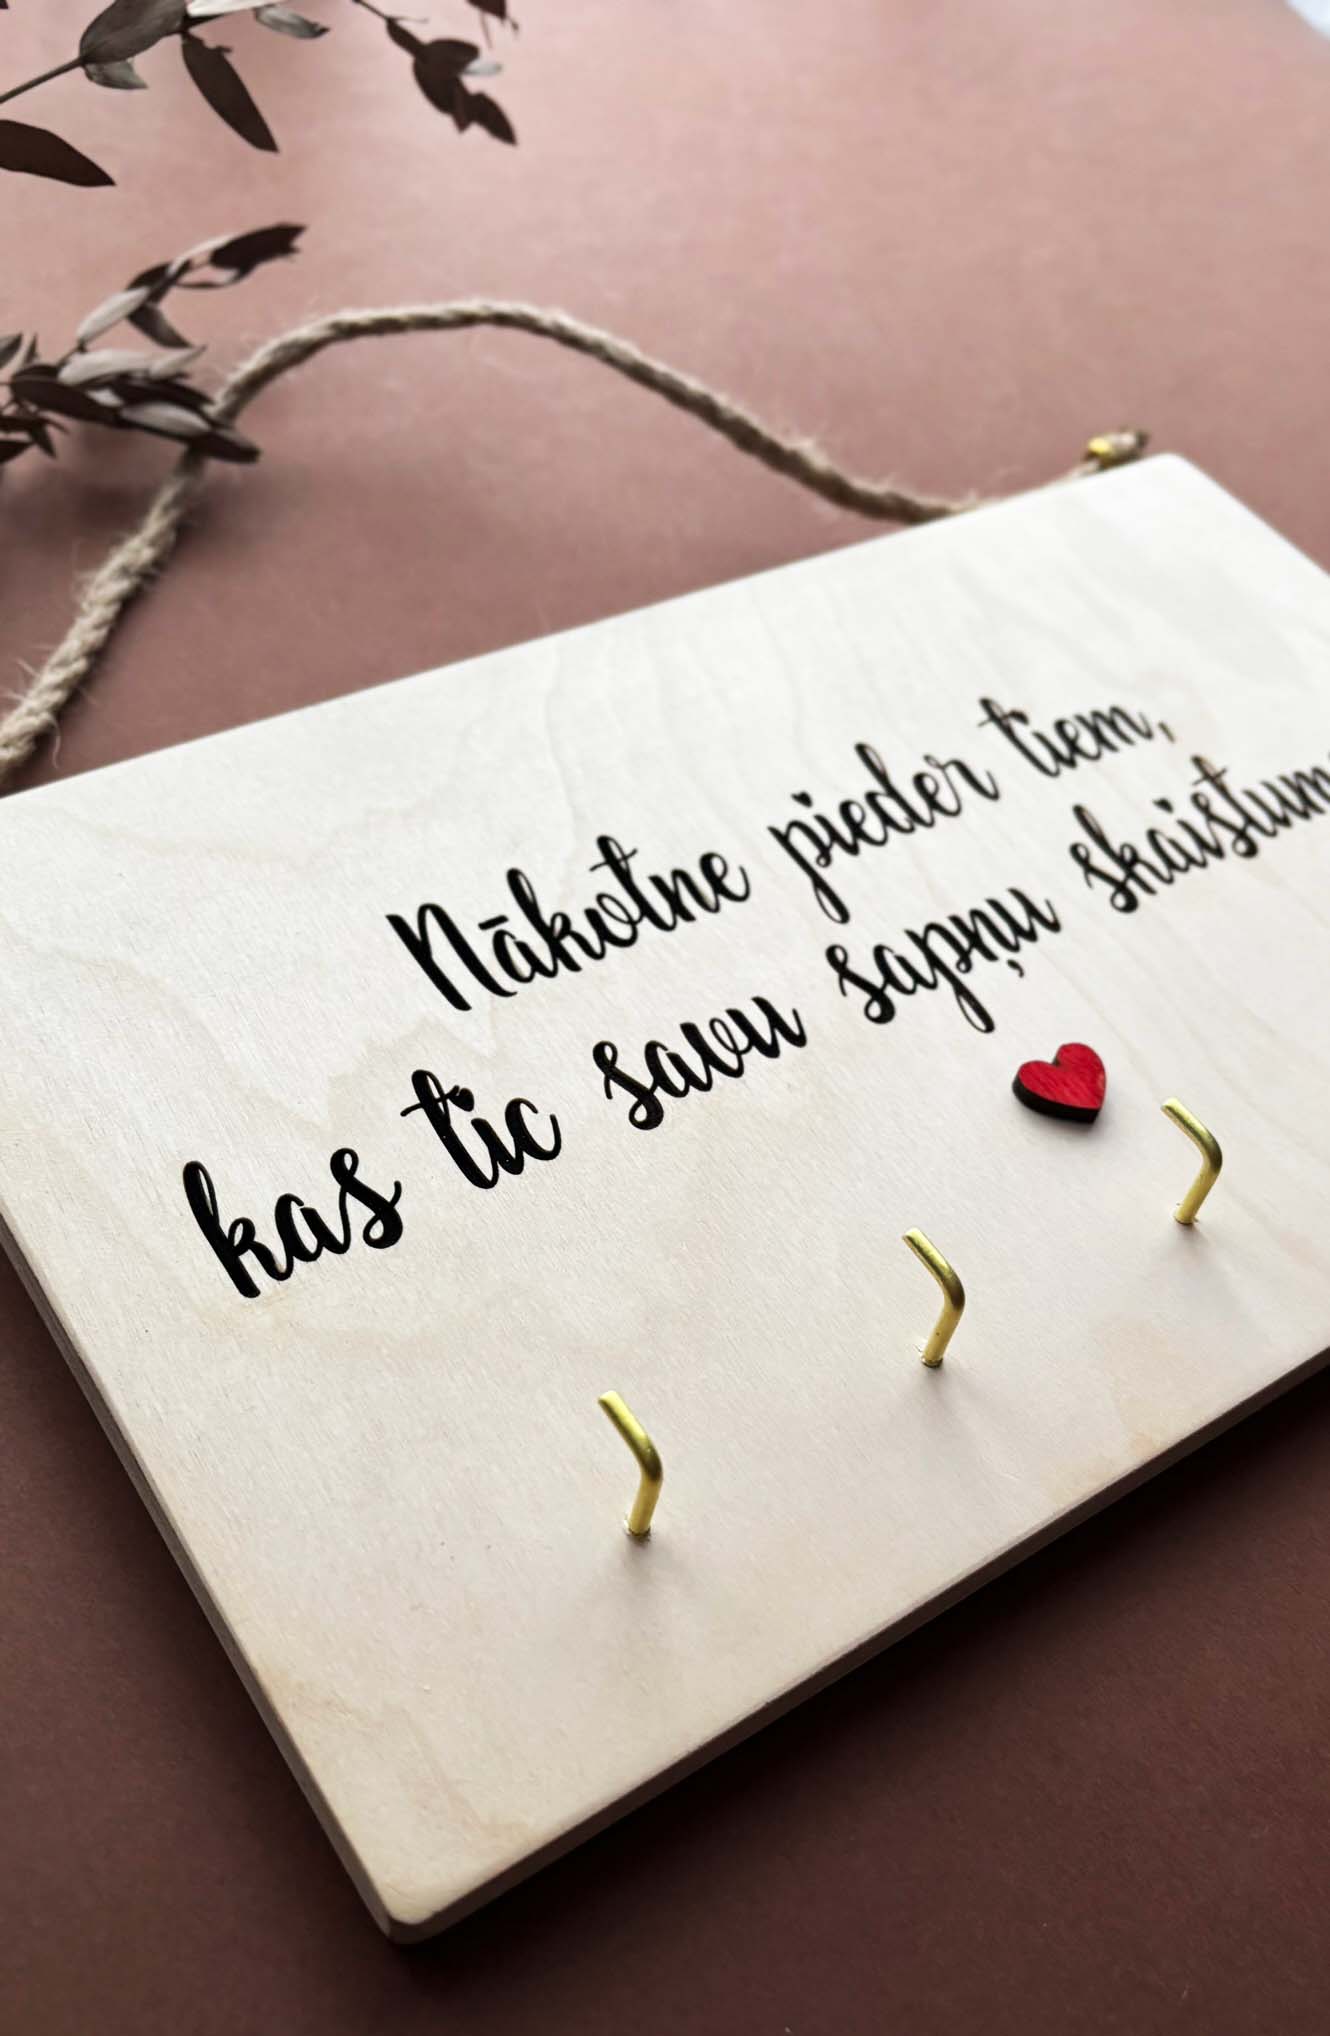 Nākotne pieder tiem,
kas tic savu sapņu skaistum